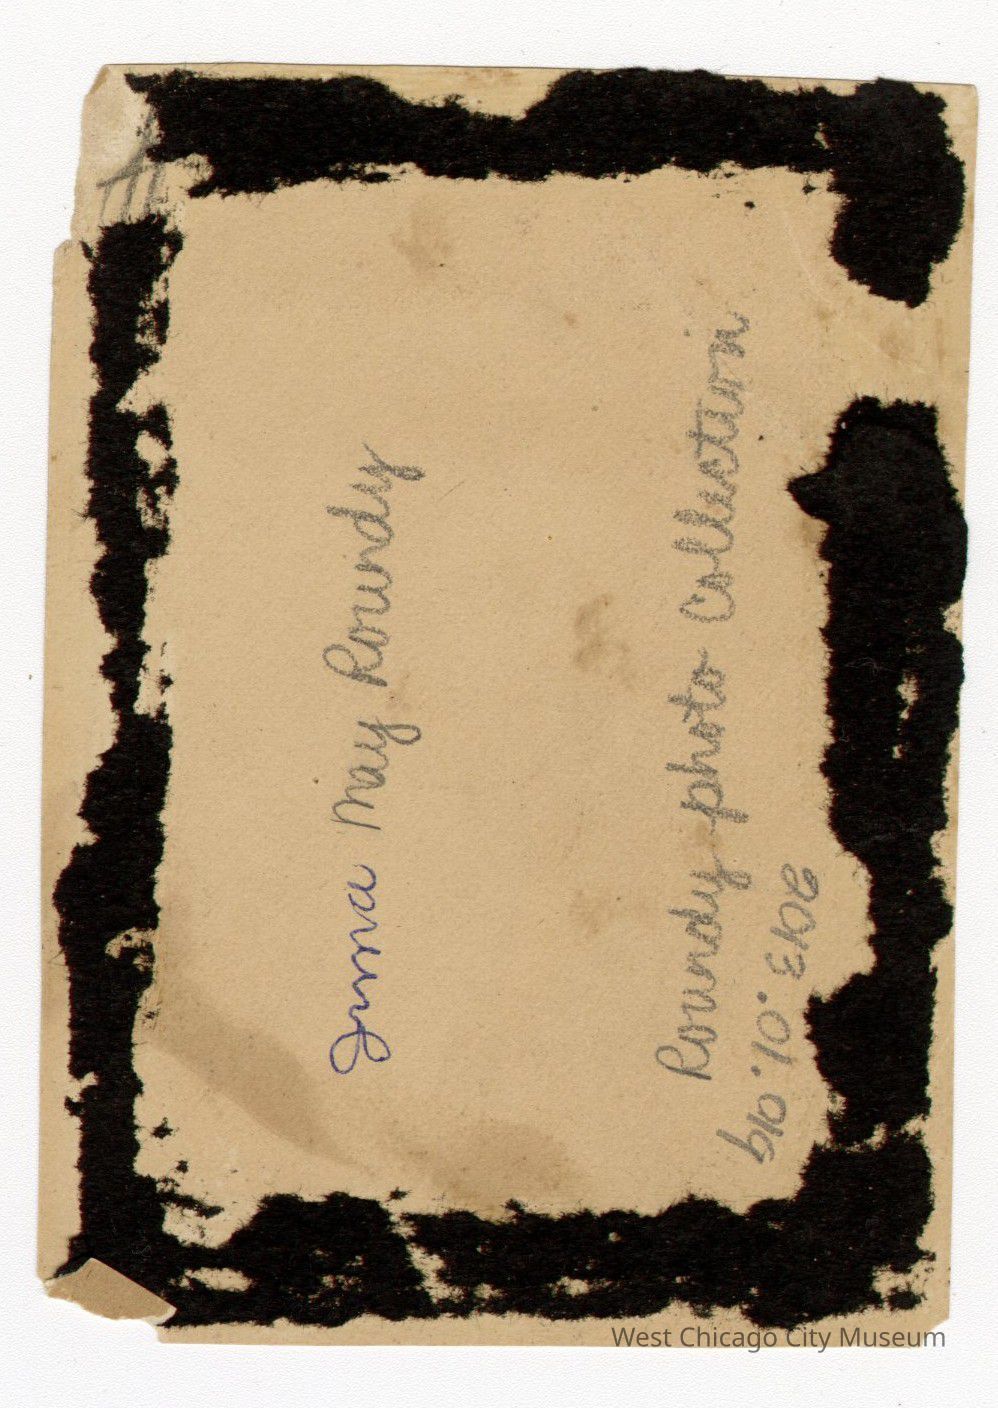 Irma May Roundy
Roundy photo Collection
2013.01.019
West Chicago City Museum